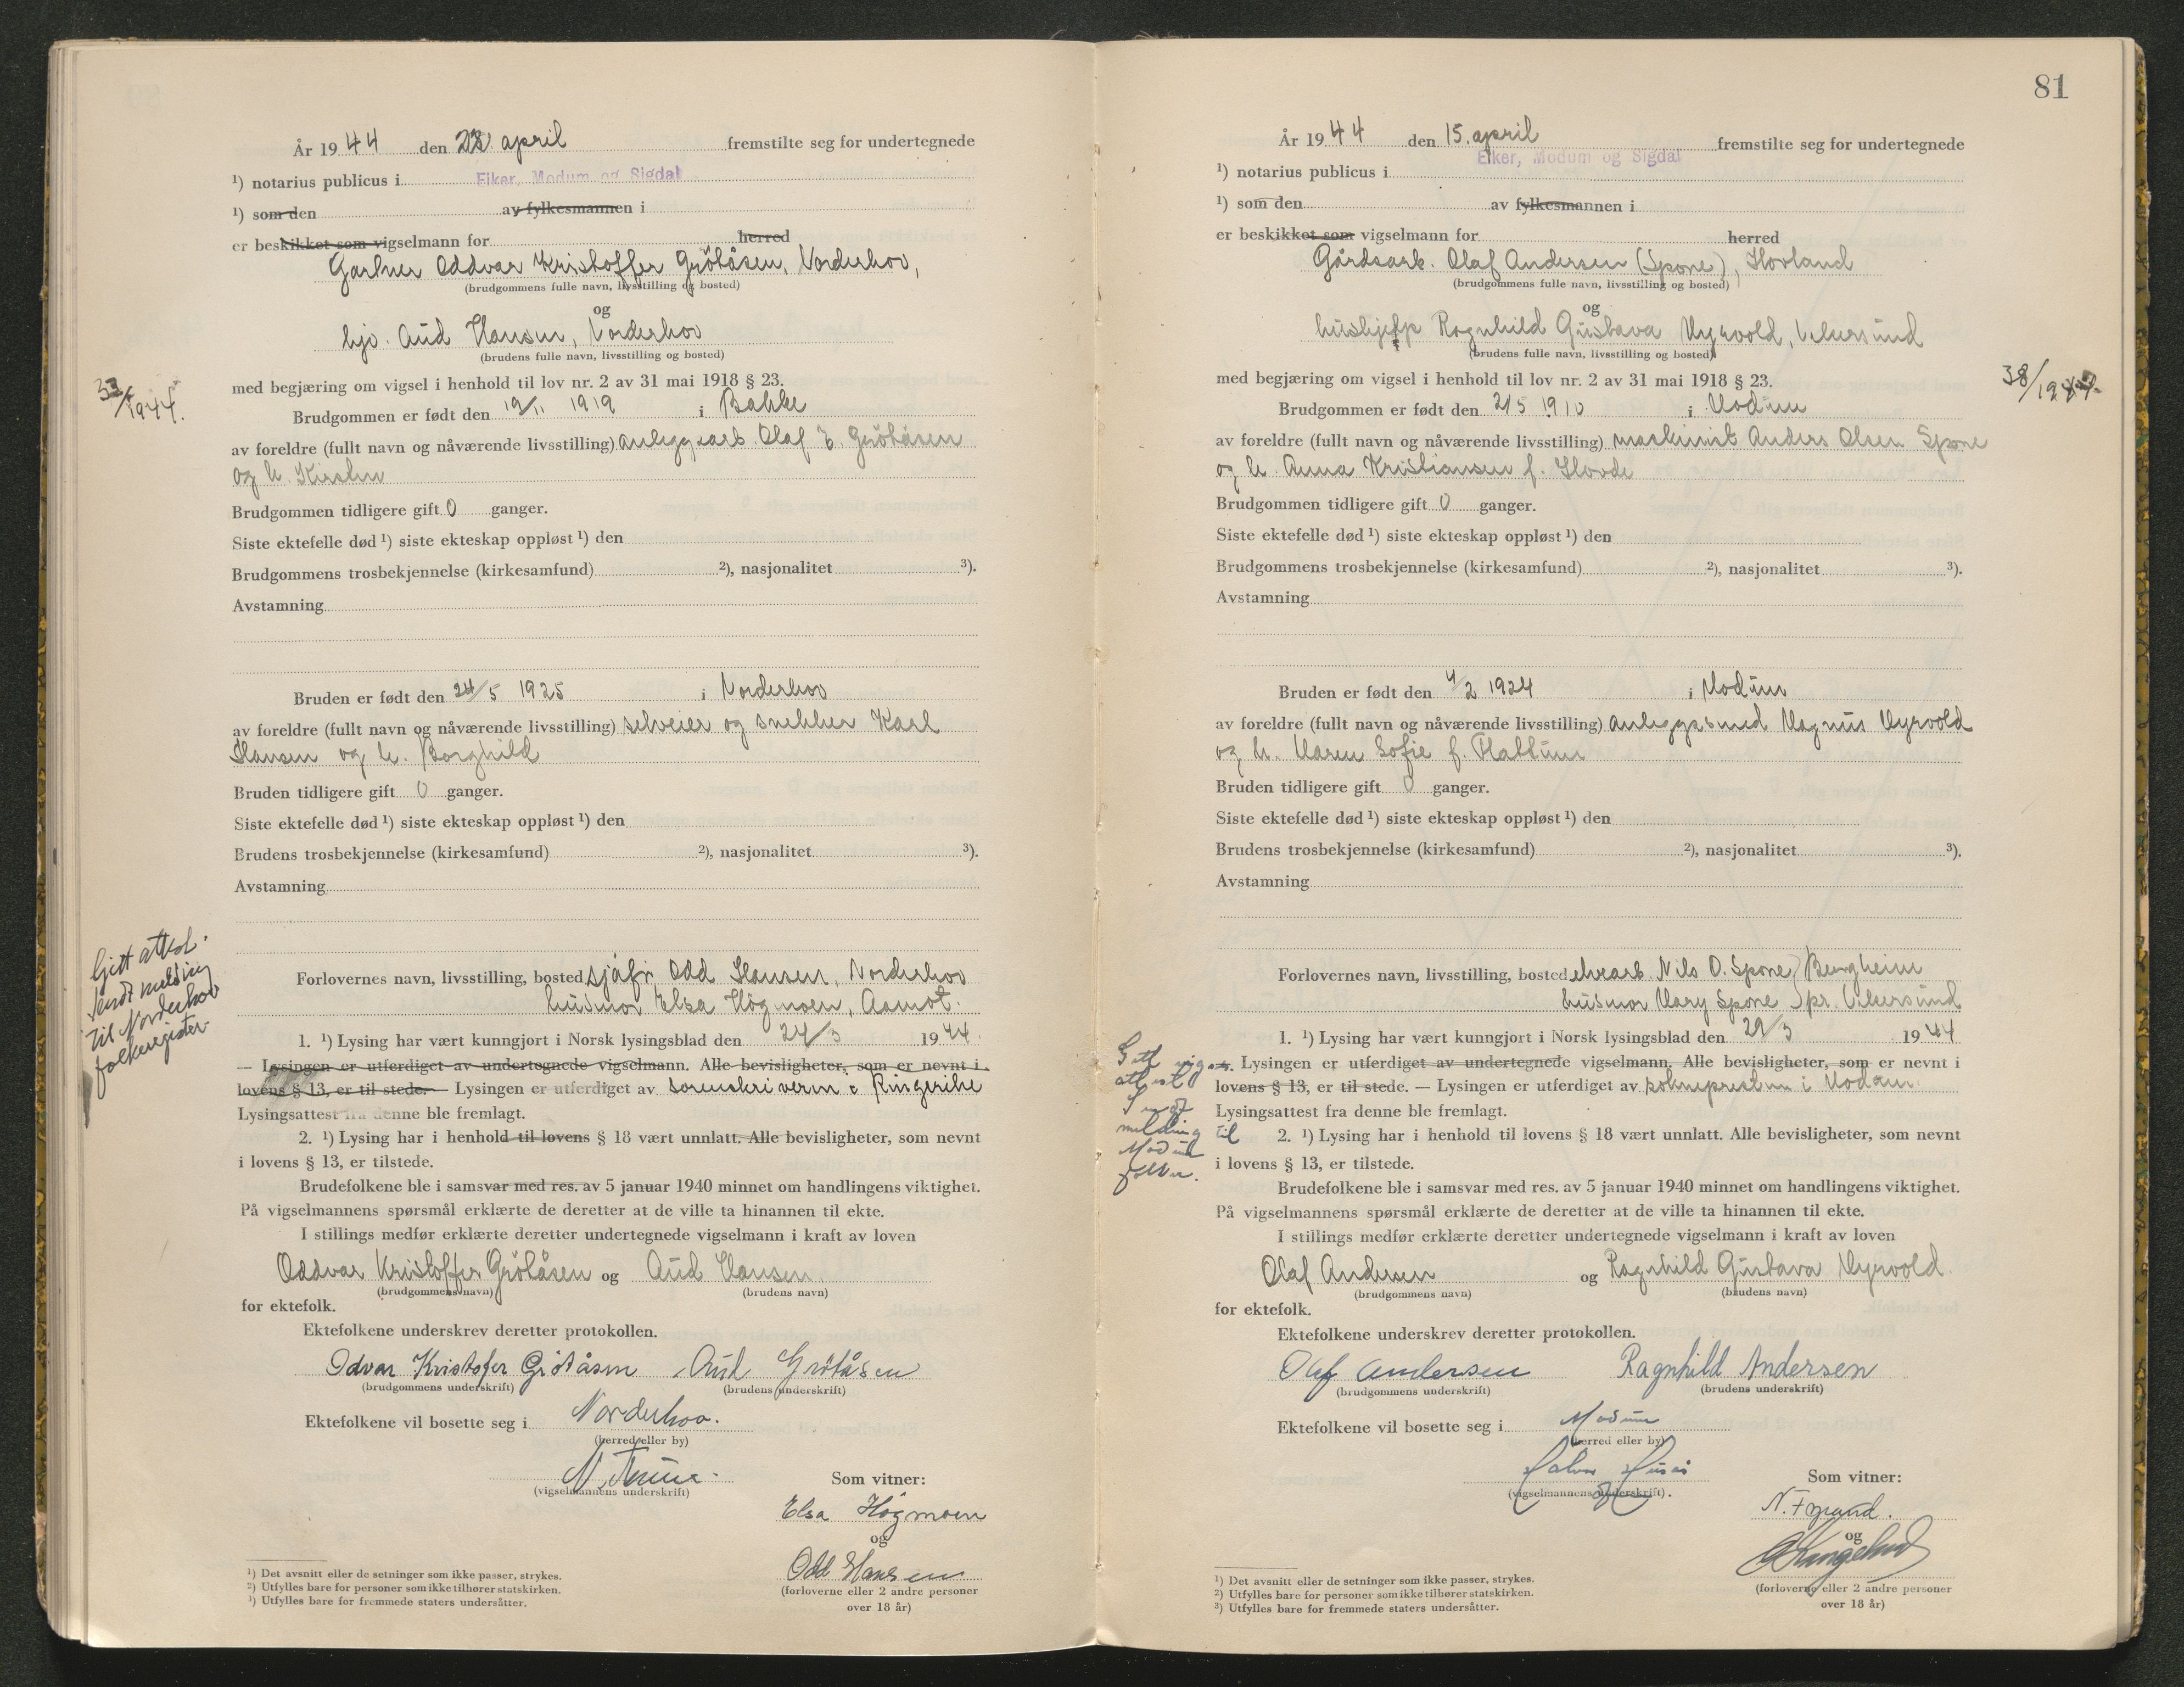 År 1944 den 28 april fremstilte seg for undertegnede
¹) notarius publicus i Eiker, Modum og Sigdal
¹) som den av fylkesmannen i
er beskikket som vigselmann for herred
Gartner Oddvar Kristoffer Grötåsen, Norderhov,
(brudgommens fulle navn, livsstilling og bosted)
og
hjv. Aud Hansen, Norderhov
(brudens fulle navn, livsstilling og bosted)
med begjæring om vigsel i henhold til lov nr. 2 av 31 mai 1918 § 23.
1944.
Brudgommen er født den 19/11 1919 i Bakke
av foreldre (fullt navn og nåværende livsstilling) anleggsarb. Olaf E. Grötåsen
og h. Kirsten
Brudgommen tidligere gift 0 ganger.
Siste ektefelle død ¹) siste ekteskap oppløst ¹) den
Brudgommens trosbekjennelse (kirkesamfund) ²), nasjonalitet ³).
Avstamning
Bruden er født den 24/5 1925 i Norderhov
av foreldre (fullt navn og nåværende livsstilling) selveier og snekker Karl
Hansen og h. Borghild
Bruden tidligere gift 0 ganger.
Siste ektefelle død ¹) siste ekteskap oppløst ¹) den
Brudens trosbekjennelse (kirkesamfund) ²), nasjonalitet ³).
Avstamning
Gitt attest.
Sendt melding
til Norderhov
folkeregister
Forlovernes navn, livsstilling, bosted sjåfr. Odd Hansen, Norderhov
husmor Elsa Högmoen, Aamot.
1. ¹) Lysing har vært kunngjort i Norsk lysingsblad den 24/3 1944
— Lysingen er utferdiget av undertegnede vigselmann. Alle bevisligheter, som er nevnt i
lovens § 13, er til stede. — Lysingen er utferdiget av sorenskriveren i Ringerike
Lysingsattest fra denne ble fremlagt.
2. ¹) Lysing har i henhold til lovens § 18 vært unnlatt. Alle bevisligheter, som nevnt
i lovens § 13, er tilstede.
Brudefolkene ble i samsvar med res. av 5 januar 1940 minnet om handlingens viktighet.
På vigselmannens spørsmål erklærte de deretter at de ville ta hinannen til ekte.
I stillings medfør erklærte deretter undertegnede vigselmann i kraft av loven
Oddvar Kristoffer Grötåsen og Aud Hansen
(brudgommens navn) (brudens navn)
for ektefolk.
Ektefolkene underskrev deretter protokollen.
Odvar Kristofer Grötåsen Aud Grötåsen
(brudgommens underskrift) (brudens underskrift)
Ektefolkene vil bosette seg i Norderhov.
(herred eller by)
(vigselmannens underskrift)
Som vitner:
Elsa Högmoen
og
Odd Hansen
(forloverne eller 2 andre personer
over 18 år)
¹) Det avsnitt eller de setninger som ikke passer, strykes.
²) Utfylles bare for personer som ikke tilhører statskirken.
³) Utfylles bare for fremmede staters undersåtter.
81
År 1944 den 15. april fremstilte seg for undertegnede
¹) notarius publicus i Eiker, Modum og Sigdal
¹) som den av fylkesmannen i
er beskikket som vigselmann for herred
Gårdsarb. Olaf Andersen (Spone), Hovland
(brudgommens fulle navn, livsstilling og bosted)
og
hushjelp Ragnhild Gustava Myrvold, Vikersund
(brudens fulle navn, livsstilling og bosted)
med begjæring om vigsel i henhold til lov nr. 2 av 31 mai 1918 § 23.
38/1944.
Brudgommen er født den 2/5 1910 i Modum
av foreldre (fullt navn og nåværende livsstilling) maskinist Anders Olsen Spone
og h. Anna Kristiansen f. Hovde
Brudgommen tidligere gift 0 ganger.
Siste ektefelle død ¹) siste ekteskap oppløst ¹) den
Brudgommens trosbekjennelse (kirkesamfund) ²), nasjonalitet ³).
Avstamning
Bruden er født den 4/2 1924 i Modum
av foreldre (fullt navn og nåværende livsstilling) anleggssmed Magnus Myrvold
og h. Maren Sofie f. Plattum
Bruden tidligere gift 0 ganger.
Siste ektefelle død ¹) siste ekteskap oppløst ¹) den
Brudens trosbekjennelse (kirkesamfund) ²), nasjonalitet ³).
Avstamning
Forlovernes navn, livsstilling, bosted Nils O. Spone, Bergheim
husmor Mary Spone pr. Vikersund
1. ¹) Lysing har vært kunngjort i Norsk lysingsblad den 29/3 1944
— Lysingen er utferdiget av undertegnede vigselmann. Alle bevisligheter, som er nevnt i
lovens § 13, er til stede. — Lysingen er utferdiget av soknepresten i Modum.
Lysingsattest fra denne ble fremlagt.
Gitt
attest
Sendt
melding til
Modum
2. ¹) Lysing har i henhold til lovens § 18 vært unnlatt. Alle bevisligheter, som nevnt
i lovens § 13, er tilstede.
Brudefolkene ble i samsvar med res. av 5 januar 1940 minnet om handlingens viktighet.
På vigselmannens spørsmål erklærte de deretter at de ville ta hinannen til ekte.
I stillings medfør erklærte deretter undertegnede vigselmann i kraft av loven
Olaf Andersen og Ragnhild Gustava Myrvold
(brudgommens navn) (brudens navn)
for ektefolk.
Ektefolkene underskrev deretter protokollen.
Olaf Andersen Ragnhild Andersen
(brudgommens underskrift) (brudens underskrift)
Ektefolkene vil bosette seg i Modum
(herred eller by)
(vigselmannens underskrift).
Som vitner:
og
(forloverne eller 2 andre personer
over 18 år)
¹) Det avsnitt eller de setninger som ikke passer, strykes.
²) Utfylles bare for personer som ikke tilhører statskirken.
³) Utfylles bare for fremmede staters undersåtter.